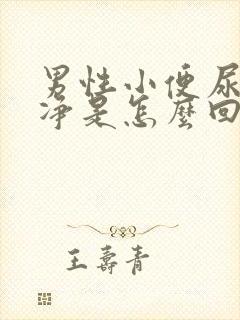 男性小便尿
净是怎麼回
王壽青